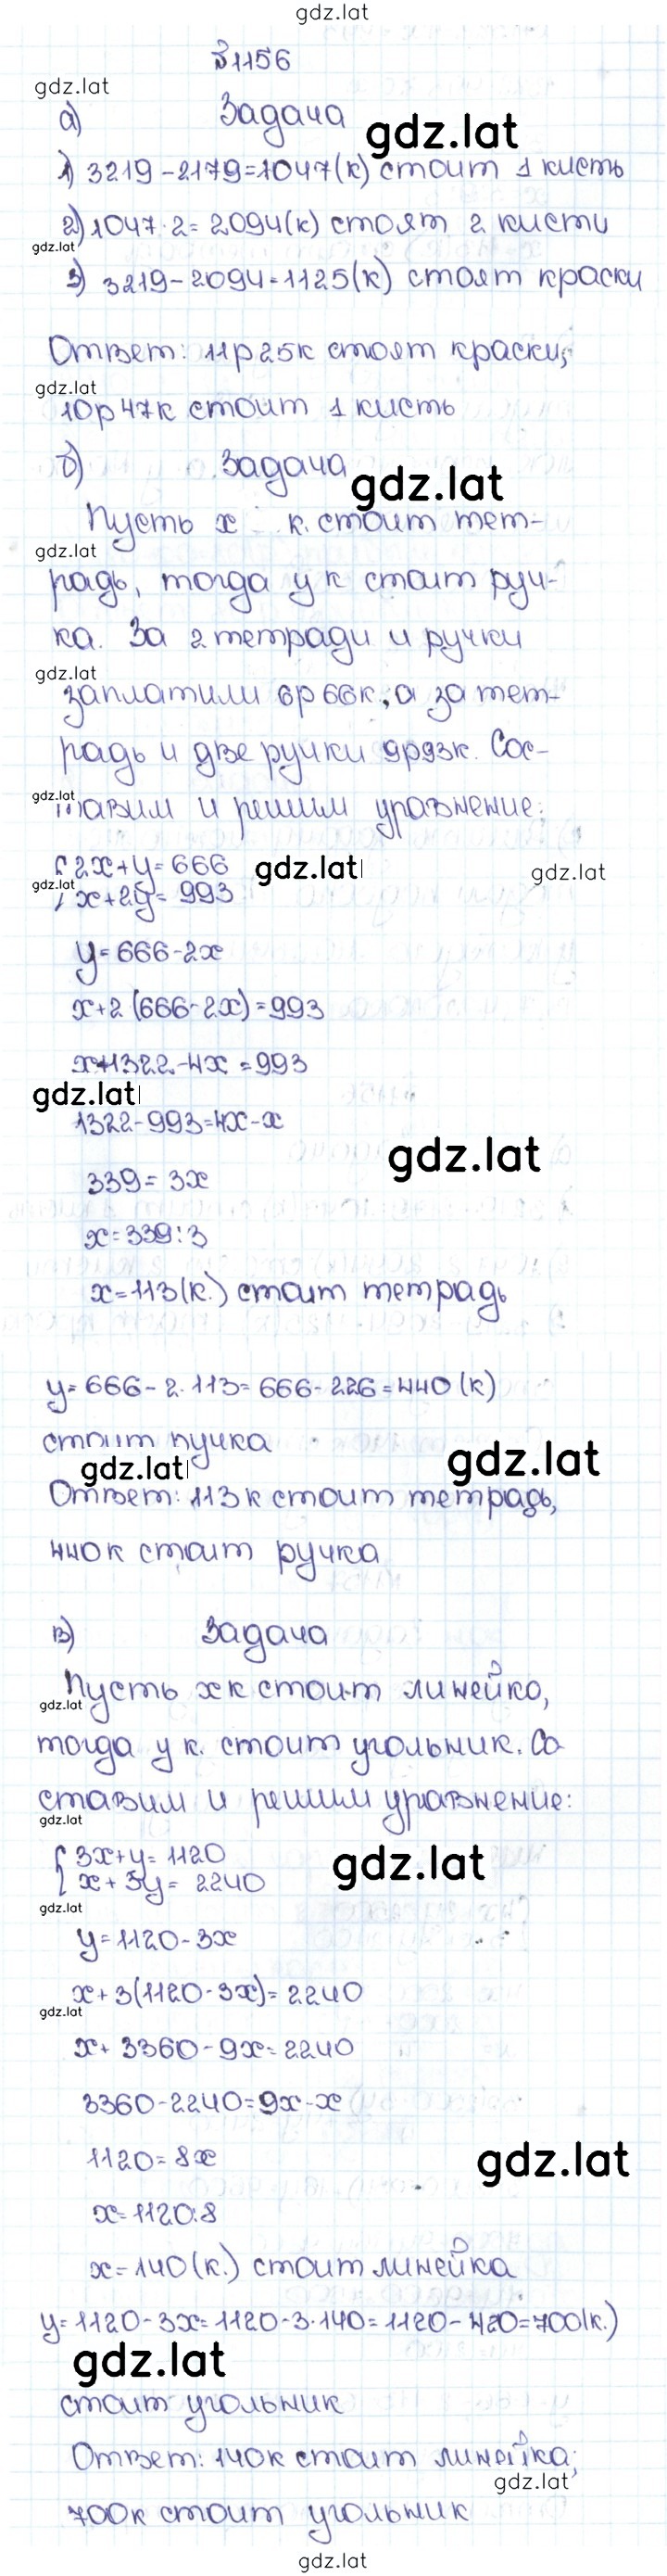 gdz.lat
№1156
gdz.lat
а) Задача
gdz.lat
1) 3219-2179=1047(к) стоит 1 кисть
2) 1047·2=2094(к) стоят 2 кисти
gdz.lat
3) 3219-2094=1125(к) стоят краски
Ответ: 11р 25к стоят краски;
gdz.lat
10р 47к стоит 1 кисть
б) Задача
gdz.lat
Пусть x к. стоит тет-
gdz.lat
радь, тогда y к стоит руч-
ка. За 2 тетради и ручки
gdz.lat
заплатили 6р 66к, а за тет-
радь и две ручки 9р93к. Сос-
gdz.lat
тавим и решим уравнение:
{ 2x+y=666
gdz.lat
gdz.lat
gdz.lat
x+2y=993
y=666-2x
x+2(666-2x)=993
x+1322-4x=993
gdz.lat
1322-993=4x-x
gdz.lat
339=3x
x=339:3
x=113(к.) стоит тетрадь
y=666-2·113=666-226=440(к)
стоит ручка
gdz.lat
gdz.lat
Ответ: 113к стоит тетрадь,
440к стоит ручка
в) Задача
Пусть x к стоит линейко,
gdz.lat
тогда y к. стоит угольник. Со
ставим и решим уравнение:
gdz.lat
{ 3x+y=1120
gdz.lat
x+3y=2240
gdz.lat
y=1120-3x
x+3(1120-3x)=2240
gdz.lat
x+3360-9x=2240
3360-2240=9x-x
1120=8x
gdz.lat
x=1120:8
x=140(к.) стоит линейка
y=1120-3x=1120-3·140=1120-420=700(к.)
gdz.lat
стоит угольник
Ответ: 140к стоит линейка;
gdz.lat
700к стоит угольник
gdz.lat